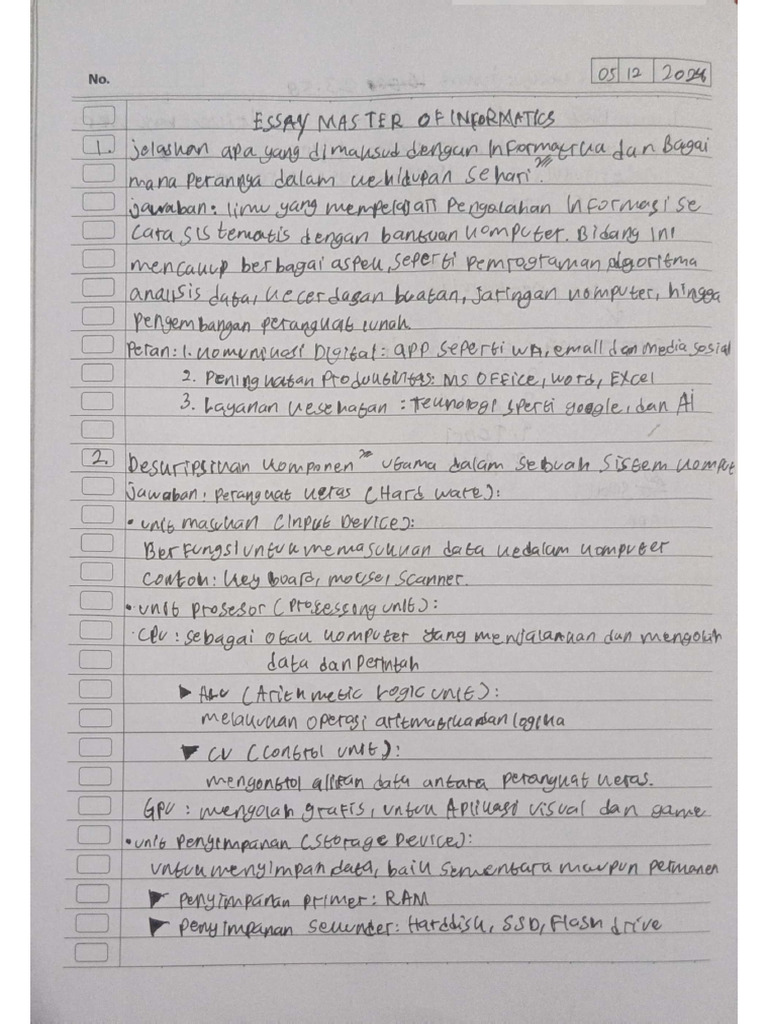 No.
05 12 2024
ESSAY MASTER OF INFORMATICS
1. jelaskan apa yang dimaksud dengan Informatika dan Bagai
mana perannya dalam kehidupan sehari"?
jawaban: Ilmu yang mempelajari Pengolahan Informasi se
cara sistematis dengan bantuan komputer. Bidang ini
mencakup berbagai aspek, seperti pemrograman algoritma
analisis data, kecerdasan buatan, jaringan komputer, hingga
pengembangan perangkat lunak.
Peran: 1. komunikasi Digital: app seperti WA, email dan media sosial
2. Peningkatan Produktivitas: MS OFFice, word, Excel
3. Layanan kesehatan: Teknologi sperti google, dan Ai
2. Deskripsikan komponen" utama dalam sebuah sistem komput
jawaban: perangkat keras (Hard ware):
• unit masukan (Input Device):
BerFungsi untuk memasukkan data kedalam komputer
contoh: key board, mouse, scanner.
• unit prosesor (processing unit):
CPU: sebagai otak komputer yang menjalankan dan mengolah
data dan perintah
▶ ALU (Arithmetic Logic unit):
melakukan operasi aritmatika dan logika
▶ CU (Control unit):
mengontrol aliran data antara perangkat keras.
GPU: mengolah grafis, untuk Aplikasi visual dan game
• unit penyimpanan (Storage Device):
untuk menyimpan data, baik sementara maupun permanen
▶ penyimpanan primer: RAM
▶ penyimpanan sekunder: Harddisk, SSD, Flash drive